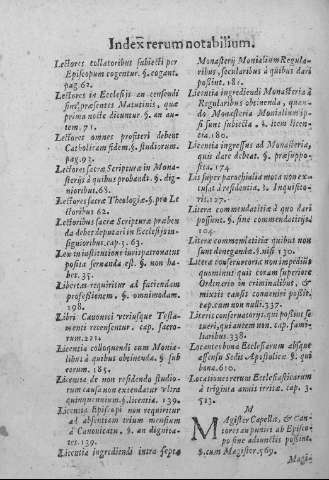 Index rerum notabilium.
Lectores collatoribus subiecti per
Episcopum cogentur. §. cogant.
pag. 62.
Lectores in Ecclesijs an censendi
sint, presentes Matutinis, quæ
prima nocte dicuntur §. an au-
tem. 71.
Lectores omnes profiteri debent
Catholicam fidem. §. studiorum.
pag. 93.
Lectores sacræ Scripturæ in Mona-
sterijs à quibus probandi. §. dig-
nioribus. 68.
Lectores sacræ Theologiæ §. pro Le
ctoribus 62.
Lectoribus sacræ Scripturæ præben
da debet deputari in Ecclesijs in-
signioribus. cap. 5. 63.
Lex in institutione iurispatronatus
posita seruanda est. §. non ha-
bet. 35.
Libertas requiritur ad faciendam
professionem. §. omnimodam.
198.
Libri Canonici vtriusque Testa-
menti recensentur. cap. sacro-
rum. 221.
Licentia colloquendi cum Monia-
libus à quibus obtinenda. § sub
eorum. 185.
Licentia de non residendo studio-
rum causa non extendatur vltra
quinquennium §. licentia. 139.
Licentia Episcopi non requiritur
ad absentiam trium mensium
à Canonicatu. §. an dignita-
tes. 139.
Licentia ingrediendi intra septa
Monasterij Monialium Regula-
ribus, secularibus à quibus dari
possint. 181.
Licentia ingrediendi Monasteria à
Regularibus obtinenda, quan-
do Monasteria Monialium ip-
sis sunt subiecta. §. item licen-
tia. 180.
Licentia ingressus ad Monasteria,
quis dare debeat. §. præsuppo-
sita. 174.
Lis super parochialia mota non ex-
cusat à residentia. §. Inquisito-
ris. 127.
Litera commendatitia à quo dari
possint. §. sine commendatitijs.
104.
Litera commendatitia quibus non
sunt denegandæ. §. nisi 130.
Litera conseruatoria non impediũt
quominus quis coram superiore
Ordinario in criminalibus, &
mixtis causis conueniri possit.
cap. cum non nulli. 337.
Literis conseruatorijs qui potiunt se
tueri, qui autem non. cap. fami-
liaribus. 338.
Locantes bona Ecclesiarum absque
assensu Sedis Apostolicæ. §. qui
bona. 610.
Locationes rerum Ecclesiasticarum
à triginta annis irritæ. cap. 3.
523.
M
Magister Capellæ, & Can-
tores an puniri ab Episco-
po sine adiunctis possint.
§. cum Magister. 569.
Magi-